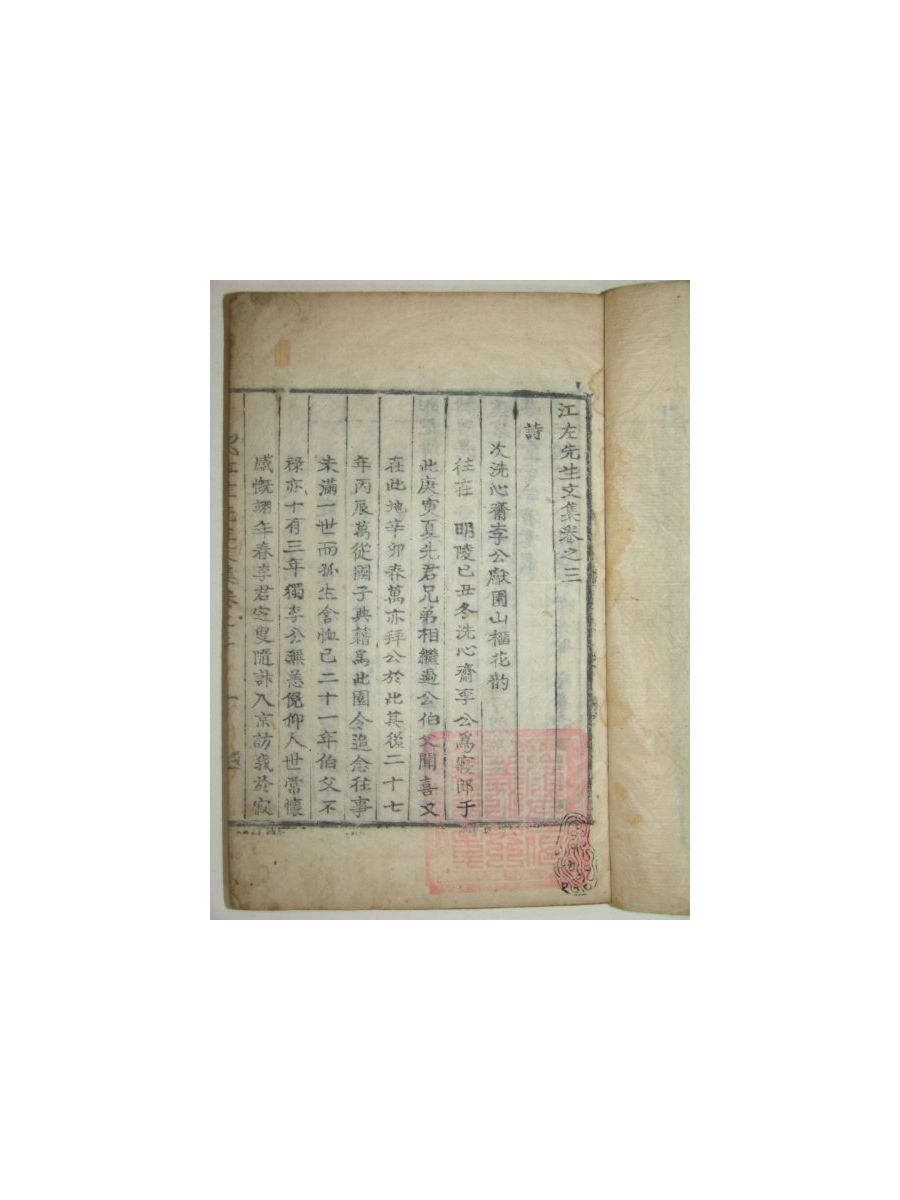 江左先生文集卷之三
詩
次洗心齋李公獻園山榴花韵
往在 明陵己丑冬洗心齋李公爲寢郎于
此庚寅夏先君兄弟相繼過公伯父聞喜又
在此地辛卯春萬亦拜公於此其後二十七
年丙辰萬從國子典籍爲此園令追念往事
未滿一世而孤生含恤已二十一年伯父不
祿亦十有三年獨李公無恙俛仰人世常懷
感慨翊年春李君之叟隨計入京訪我於寂